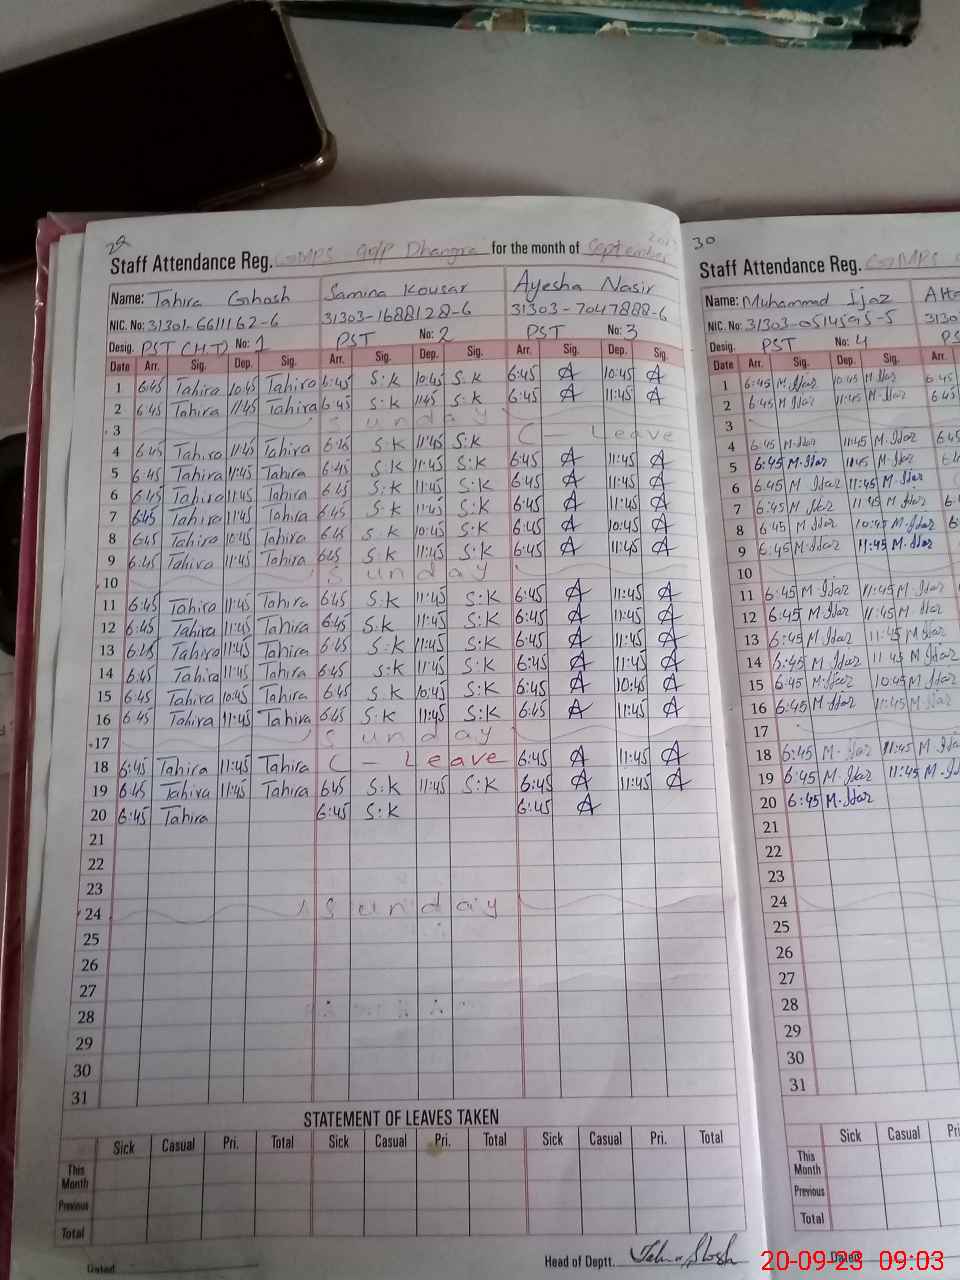 29
Staff Attendance Reg. GGMPS 90/P Dhangra for the month of September
Name: Tahira Ghosh Samina Kousar Ayesha Nasir
NIC. No: 31301-6611162-6 31303-1688128-6 31303-7047888-6
Desig. PST (HT) No: 1 PST No: 2 PST No: 3
Date Arr. Sig. Dep. Sig. Arr. Sig. Dep. Sig. Arr. Sig. Dep. Sig.
1 6:45 Tahira 10:45 Tahira 6:45 S:K 10:45 S:K 6:45 A 10:45 A
2 6:45 Tahira 11:45 Tahira 6:45 S:K 11:45 S:K 6:45 A 11:45 A
3 Sunday
4 6:45 Tahira 11:45 Tahira 6:45 S:K 11:45 S:K C - Leave
5 6:45 Tahira 11:45 Tahira 6:45 S:K 11:45 S:K 6:45 A 11:45 A
6 6:45 Tahira 11:45 Tahira 6:45 S:K 11:45 S:K 6:45 A 11:45 A
7 6:45 Tahira 11:45 Tahira 6:45 S:K 11:45 S:K 6:45 A 11:45 A
8 6:45 Tahira 10:45 Tahira 6:45 S:K 10:45 S:K 6:45 A 10:45 A
9 6:45 Tahira 11:45 Tahira 6:45 S:K 11:45 S:K 6:45 A 11:45 A
10 Sunday
11 6:45 Tahira 11:45 Tahira 6:45 S:K 11:45 S:K 6:45 A 11:45 A
12 6:45 Tahira 11:45 Tahira 6:45 S:K 11:45 S:K 6:45 A 11:45 A
13 6:45 Tahira 11:45 Tahira 6:45 S:K 11:45 S:K 6:45 A 11:45 A
14 6:45 Tahira 11:45 Tahira 6:45 S:K 11:45 S:K 6:45 A 11:45 A
15 6:45 Tahira 10:45 Tahira 6:45 S:K 10:45 S:K 6:45 A 10:45 A
16 6:45 Tahira 11:45 Tahira 6:45 S:K 11:45 S:K 6:45 A 11:45 A
17 Sunday
18 6:45 Tahira 11:45 Tahira C - Leave 6:45 A 11:45 A
19 6:45 Tahira 11:45 Tahira 6:45 S:K 11:45 S:K 6:45 A 11:45 A
20 6:45 Tahira 6:45 S:K 6:45 A
21
22
23
24 Sunday
25
26
27
28
29
30
31
STATEMENT OF LEAVES TAKEN
Sick Casual Pri. Total Sick Casual Pri. Total Sick Casual Pri. Total
This Month
Previous
Total
Dated Head of Deptt.
30
Staff Attendance Reg. GGMPS
Name: Muhammad Ijaz
NIC. No: 31303-0514595-5 3130
Desig. PST No: 4
Date Arr. Sig. Dep. Sig. Arr.
1 6:45 M.Ijaz 10:45 M.Ijaz 6:45
2 6:45 M.Ijaz 11:45 M.Ijaz 6:45
3
4 6:45 M.Ijaz 11:45 M.Ijaz 6:45
5 6:45 M.Ijaz 11:45 M.Ijaz
6 6:45 M.Ijaz 11:45 M.Ijaz
7 6:45 M.Ijaz 11:45 M.Ijaz
8 6:45 M.Ijaz 10:45 M.Ijaz
9 6:45 M.Ijaz 11:45 M.Ijaz
10
11 6:45 M.Ijaz 11:45 M.Ijaz
12 6:45 M.Ijaz 11:45 M.Ijaz
13 6:45 M.Ijaz 11:45 M.Ijaz
14 6:45 M.Ijaz 11:45 M.Ijaz
15 6:45 M.Ijaz 10:45 M.Ijaz
16 6:45 M.Ijaz 11:45 M.Ijaz
17
18 6:45 M.Ijaz 11:45 M.Ijaz
19 6:45 M.Ijaz 11:45 M.Ijaz
20 6:45 M.Ijaz
21
22
23
24
25
26
27
28
29
30
31
Sick Casual Pri
This Month
Previous
Total
Dated
20-09-23 09:03